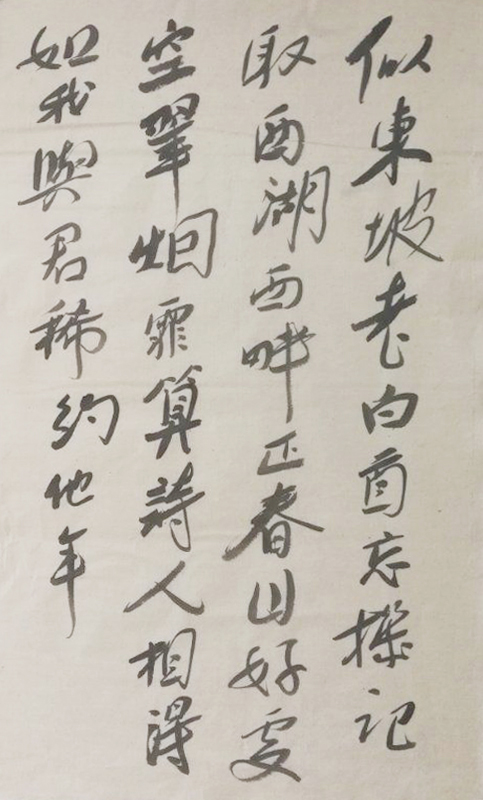 似東坡老白首忘機記
取西湖西畔正春山好處
空翠烟霏算詩人相得
如我與君稀約他年